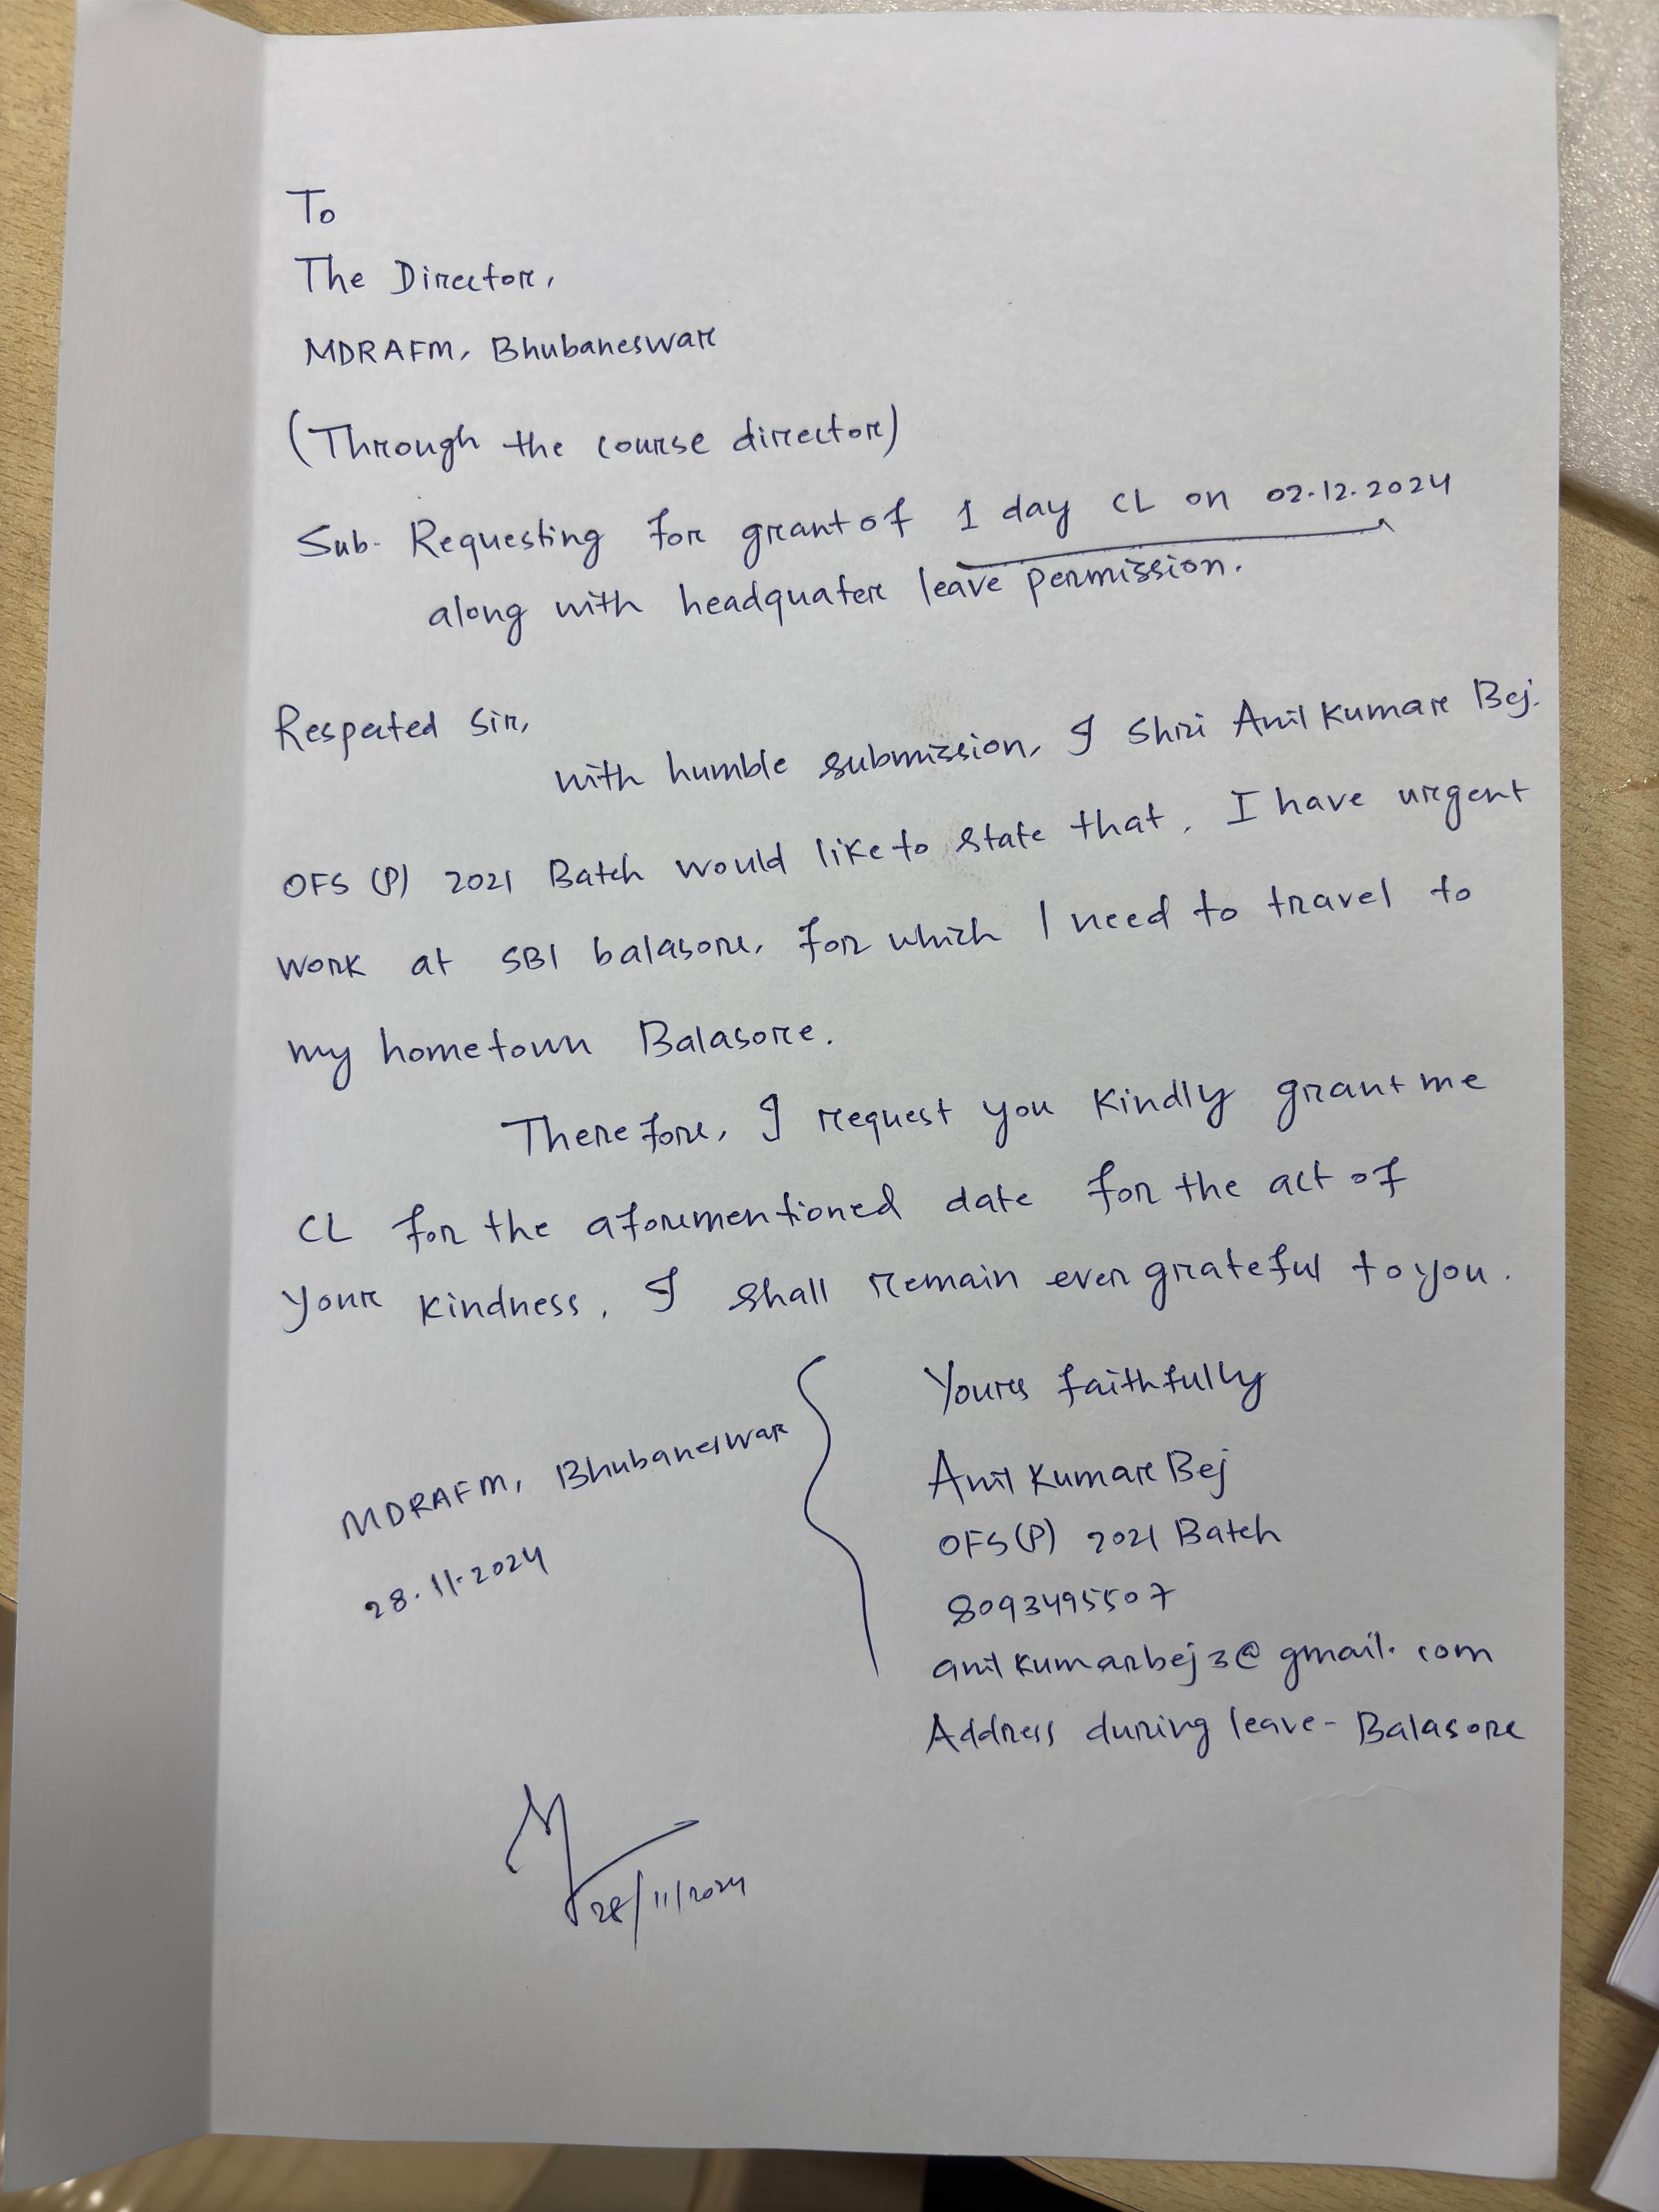 To
The Director,
MDRAFM, Bhubaneswar
(Through the course director)
Sub- Requesting for grant of 1 day CL on 02.12.2024
along with headquater leave permission.
Respected Sir,
with humble submission, I Shri Anil Kumar Bej.
OFS (P) 2021 Batch would like to state that, I have urgent
work at SBI balasore, for which I need to travel to
my hometown Balasore.
Therefore, I request you kindly grant me
CL for the aforementioned date for the act of
your kindness, I shall remain ever grateful to you.
Yours faithfully
Anil Kumar Bej
OFS (P) 2021 Batch
8093495507
anilkumarbej3@gmail.com
Address during leave - Balasore
MDRAFM, Bhubaneswar
28.11.2024
28/11/2024